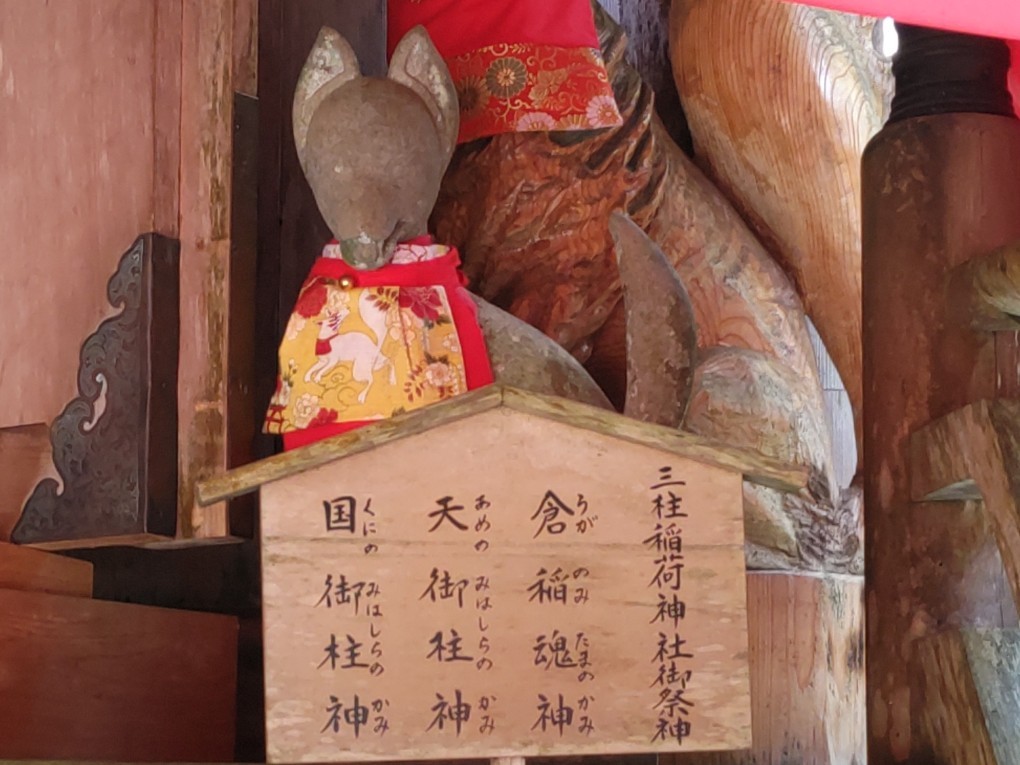 三柱稲荷神社御祭神
倉稲魂神
うがのみたまのかみ
天御柱神
あめのみはしらのかみ
国御柱神
くにのみはしらのかみ